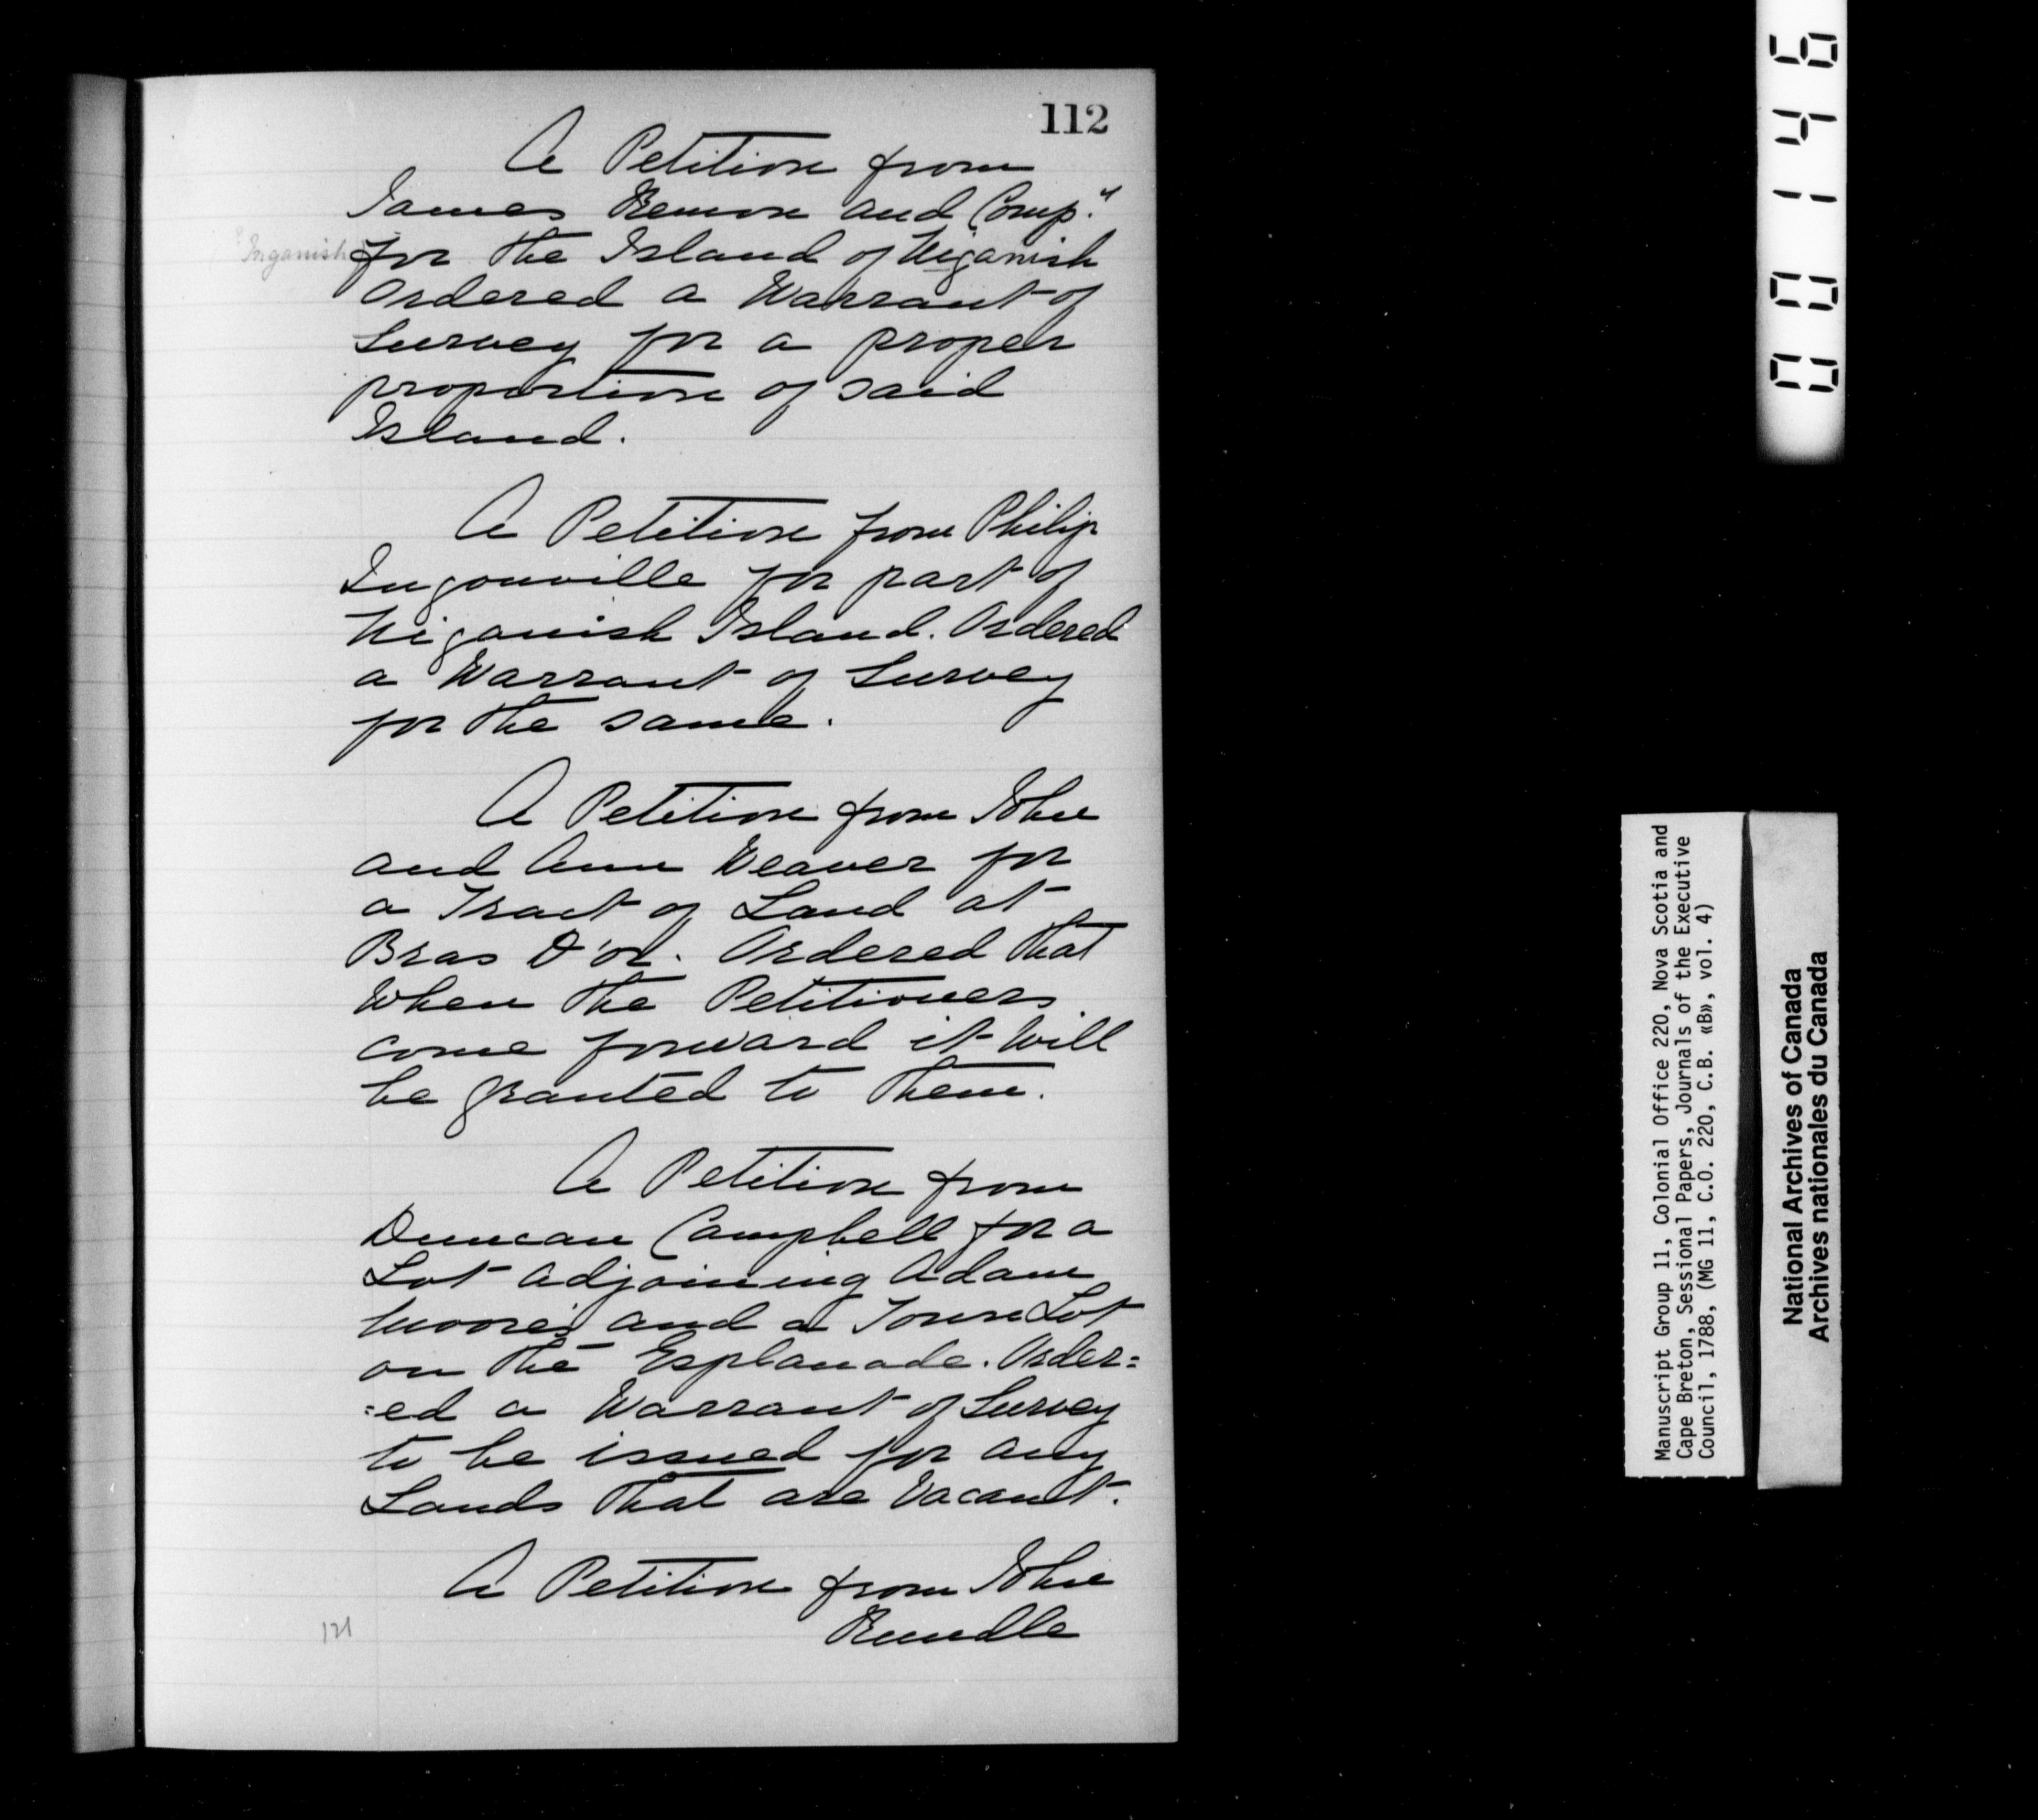 112
A Petition from
James Remon and Comp.y
? Inganish
for the Island of Niganish
Ordered a Warrant of
Survey for a proper
proportion of said
Island.
A Petition from Philip
Ingouville for part of
Niganish Island. Ordered
a Warrant of Survey
for the same.
A Petition from John
and Ann Weaver for
a Tract of Land at
Bras D'or. Ordered that
when the Petitioners
come forward it will
be granted to them.
A Petition from
Duncan Campbell for a
Lot adjoining Adam
Moore's and a Town Lot
on the Esplanade. Order=
=ed a Warrant of Survey
to be issued for any
Lands that are Vacant.
A Petition from John
Rundle
121
001146
Manuscript Group 11, Colonial Office 220, Nova Scotia and
Cape Breton, Sessional Papers, Journals of the Executive
Council, 1788, (MG 11, C.O. 220, C.B. «B», vol. 4)
National Archives of Canada
Archives nationales du Canada